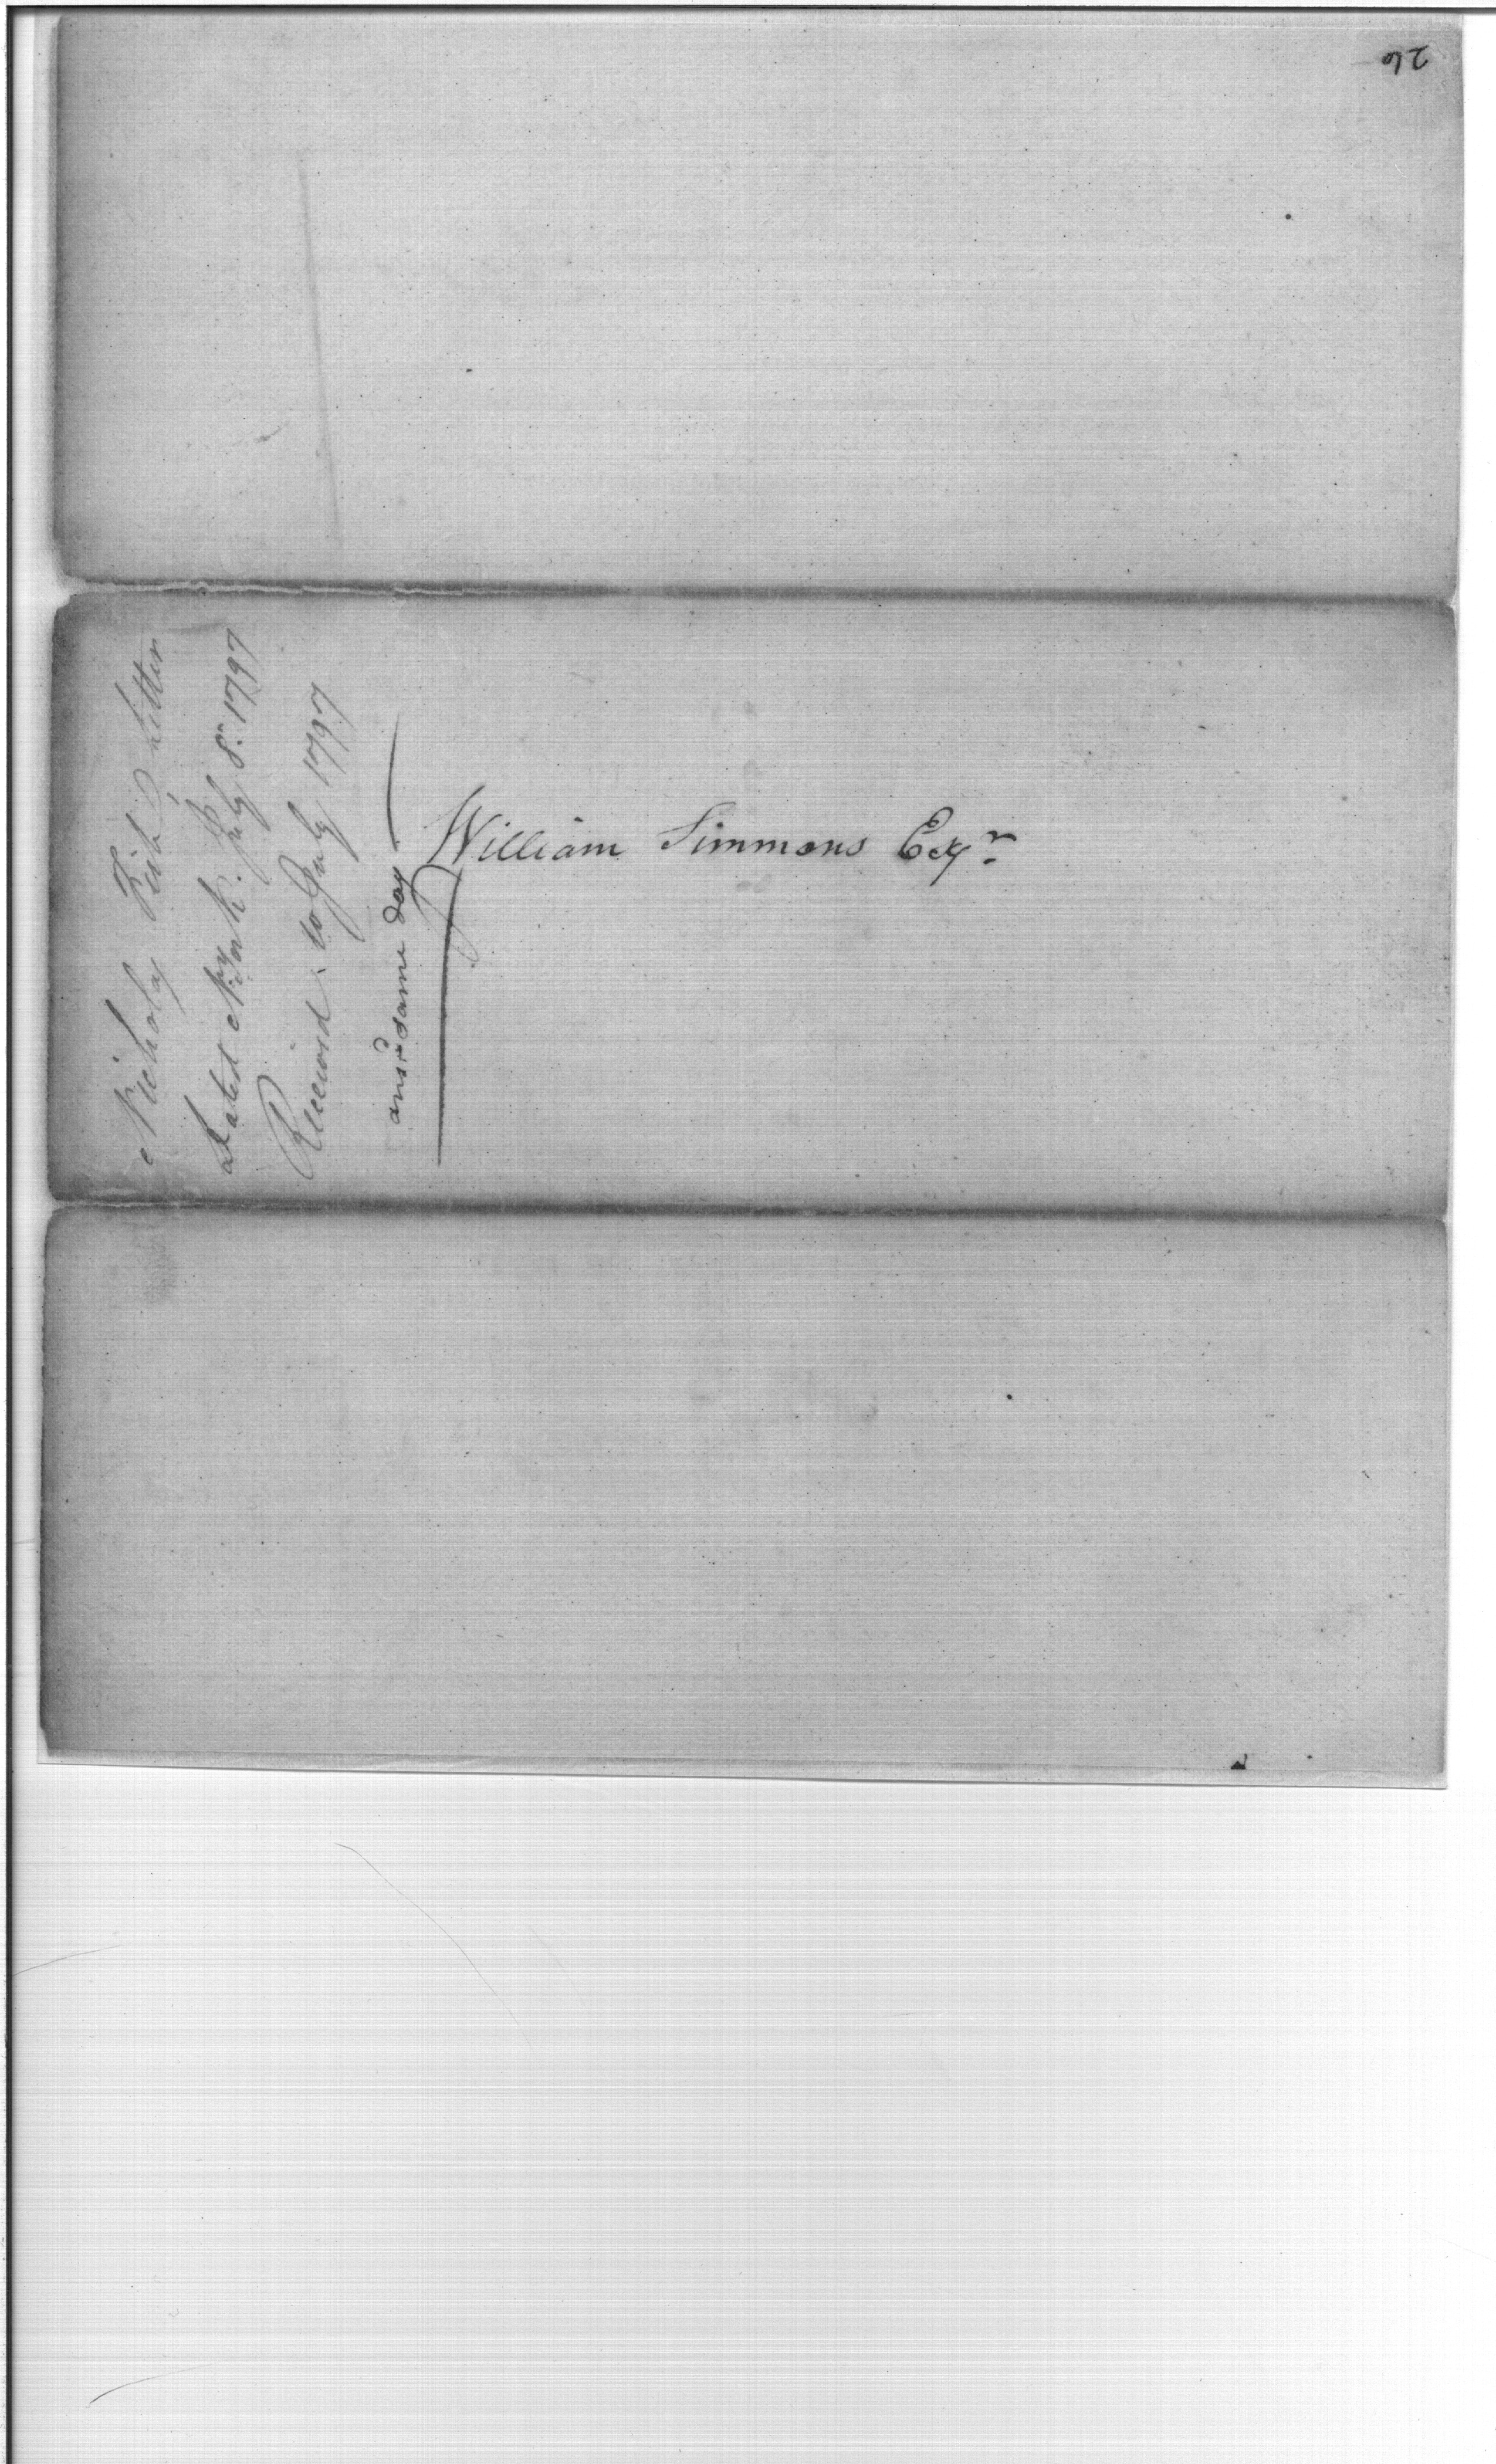 26
Nicholas Fish's Letter
Dated NYork. July 8th. 1797
Received. 10 July 1797
ansd. same day
William Simmons Esqr.